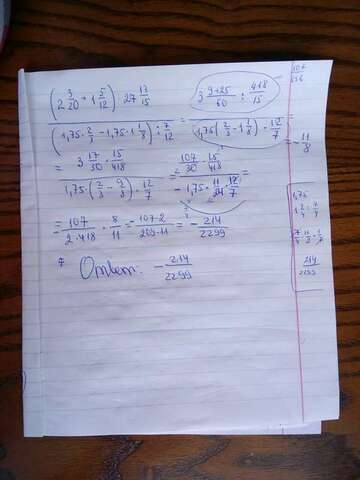 (2 3/20 + 1 5/12) : 27 13/15 / (1,75 · 2/3 − 1,75 · 1 1/8) : 7/12 = 3 9+25/60 : 418/15 / 1,75(2/3 − 1 1/8) · 12/7 =
= 3 17/30 · 15/418 / 1,75 · (2/3 − 9/8) · 12/7 = 107/30 · 15/418 / − 1,75 · 11/24 · 12/7 =
= 107/2·418 · 8/11 = − 107·2/209·11 = − 214/2299
Ответ: − 214/2299
11/8
1,75
214/2299